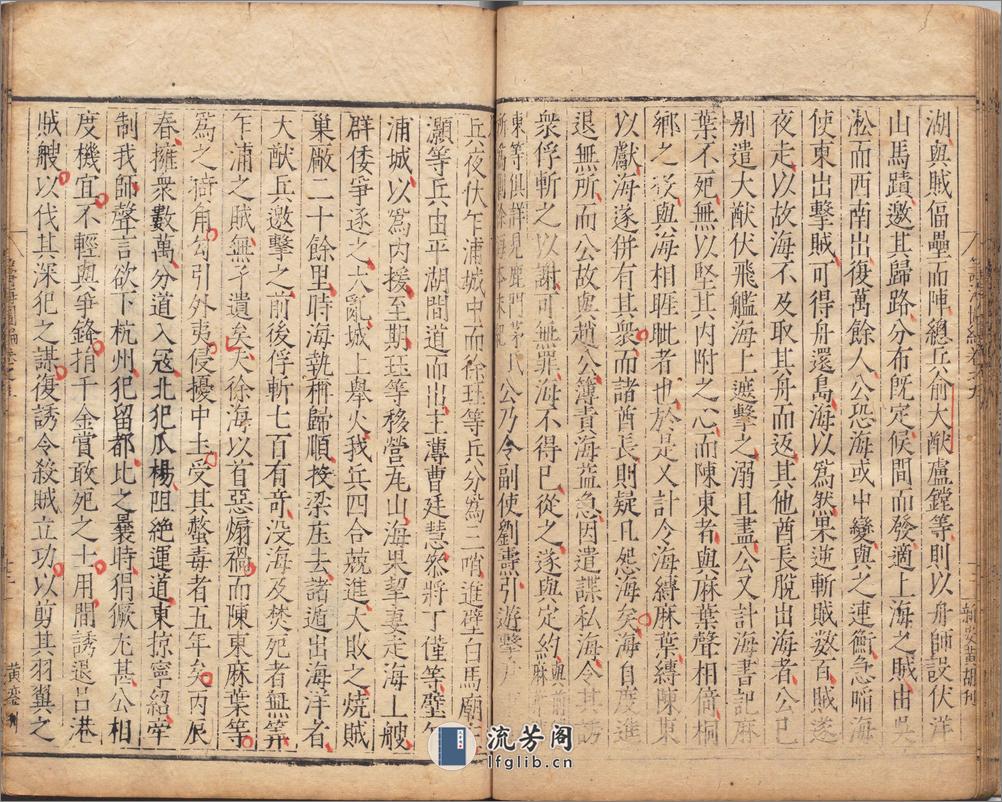 湖與賊偪壘而陣總兵俞大猷盧鏜等則以舟師設伏洋
山馬蹟邀其歸路分布既定候間而發適上海之賊由吳
淞而西南出復萬餘人公恐海或中變與之連衡急啗海
使東出擊賊可得舟還島海以爲然果逆斬賊数百賊遂
夜走以故海不及取其舟而返其他酋長脫出海者公已
别遣大猷伏飛艦海上遮擊之溺且盡公又計海書記麻
葉不死無以堅其内附之心而陳東者與麻葉聲相倚桐
鄉之役與海相睚眦者也於是又計令海縛麻葉縛陳東
以獻海遂併有其衆而諸酋長則疑且怨海矣海自度進
退無所而公故與趙公簿責海益急因遣諜私海令其誘
衆俘斬之以謝可無罪海不得已從之遂與定約與前麻
東等俱詳見鹿門茅氏公乃令副使劉燾引遊擊
兵夜伏乍浦城中而徐珏等兵分爲二哨進壁白馬廟王
灝等兵由平湖間道而出土薄曹廷慧叅將丁僅等壁乍
浦城以爲内援至期珏等移營瓦山海果挈妻走海上艘
群倭爭逐之大亂城上舉火我兵四合競進大敗之焼賊
巢厰二十餘里時海執稱歸順按梁庄去諸遁出海洋者
大猷兵邀擊之前後俘斬七百有奇没海及焚死者無筭
乍浦之賊無孑遺矣夫徐海以首惡煽禍而陳東麻葉等
爲之犄角勾引外夷侵擾中土受其螫毒者五年矣丙辰
春擁衆數萬分道入冦北犯瓜楊阻絶運道東掠寧紹牽
制我師聲言欲下杭州犯留都比之曩時猖獗尤甚公相
度機宜不輕與爭鋒捐千金賞敢死之士用間誘退吕港
賊艘以伐其深犯之謀復誘令殺賊立功以剪其羽翼之
黄鋑刊
流芳阁
lfglib.cn